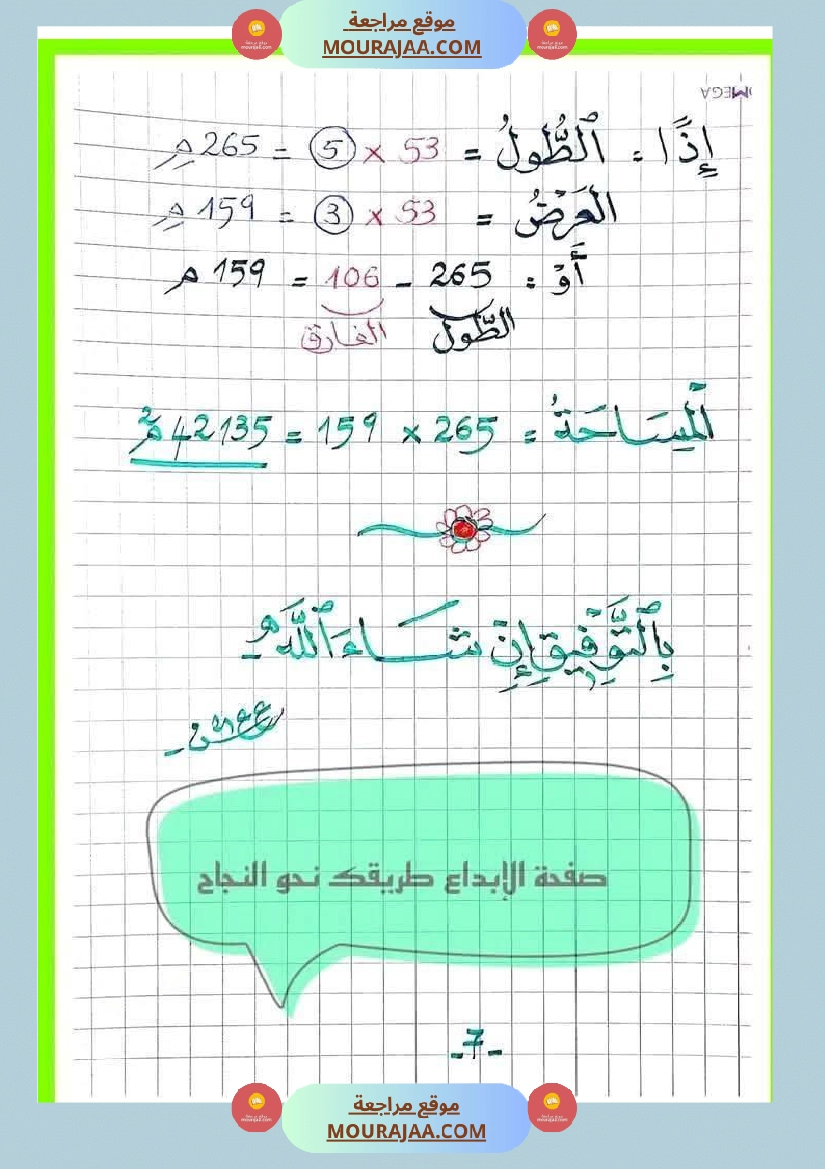 موقع مراجعة
MOURAJAA.COM
OMEGA
إِذًا : الطُّولُ = 53 × 5 = 265 م
العَرْضُ = 53 × 3 = 159 م
أَوْ : 265 - 106 = 159 م
الطُّولُ الفارق
المِسَاحَةُ = 265 × 159 = 42135 م²
بِالتَّوْفِيقِ إِنْ شَاءَ اللَّهُ
صفحة الإبداع طريقك نحو النجاح
-7-
موقع مراجعة
MOURAJAA.COM